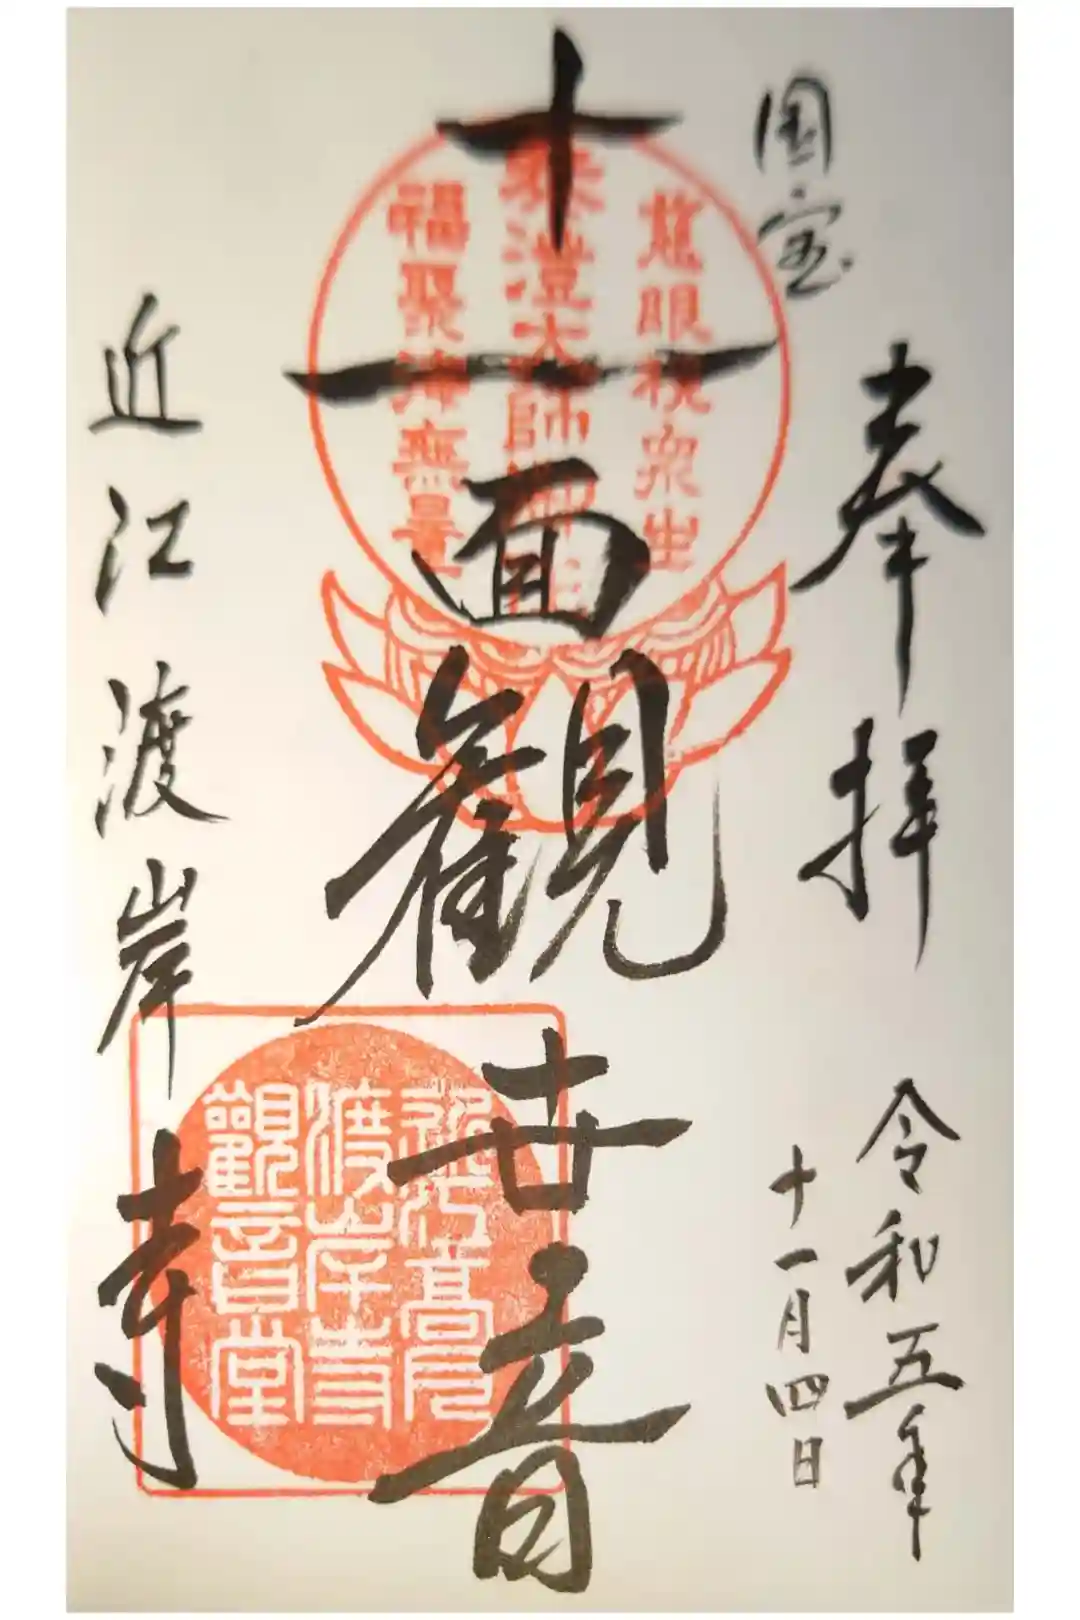 国宝
奉拝
令和五年
十一月四日
慈眼視衆生
泰澄大師
福聚海無量
十一面観世音
近江高月
渡岸寺
觀音堂
近江渡岸寺